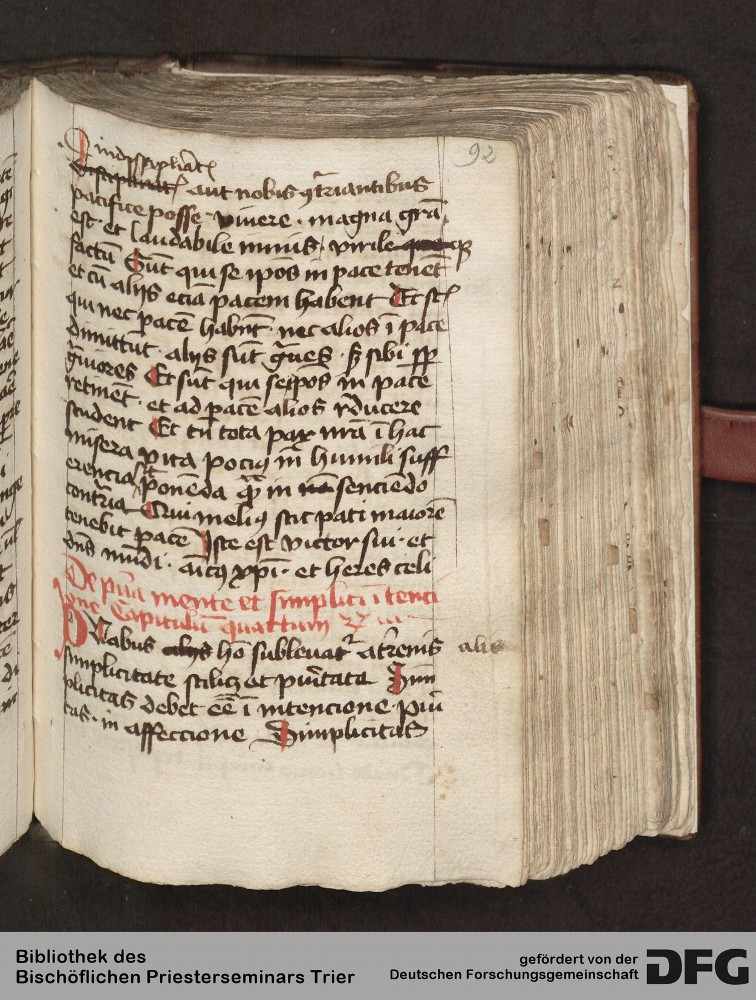 92
Indisciplīatꝭ
disciplinatꝭ aut nobis 9͛triantibus
pacifice posse viuere · magna grā
est · et laudabile nimis / virile qꝫ
factū Sūt qui se ip̄os in pace tenēt
et cū alijs eciā pacem habent Et st̄
qui nec pacē habēt · nec alios ī pace
dimittūt · alijs sūt ḡues · sꝫ sibi sp̄
ḡuiores Et sūt qui seip̄os in pace
retinēt · et ad pacē alios r̄ducere
student Et tn̄ tota pax nr̄a ī hac
misera vita pociꝯ in̄ humili suff
erencia ē ponēda qͣꝫ in non senciēdo
contͣria Qui meliꝯ scit pati maiorē
tenebit pacē Iste est victor sui · et
dn̄s mūdi · amicꝯ xp̄i · et heres celi
De pūa mente et simplici ītenci
one Capitulū quartum
Duabus alijs hō subleuatͬ a t̄renis alis
simplicitate scilicꝫ et pūitate Sim
plicitas debet ēē ī intencione pūi
tas · in affeccione Simplicitas
Bibliothek des
Bischöflichen Priesterseminars Trier
gefördert von der
Deutschen Forschungsgemeinschaft
DFG